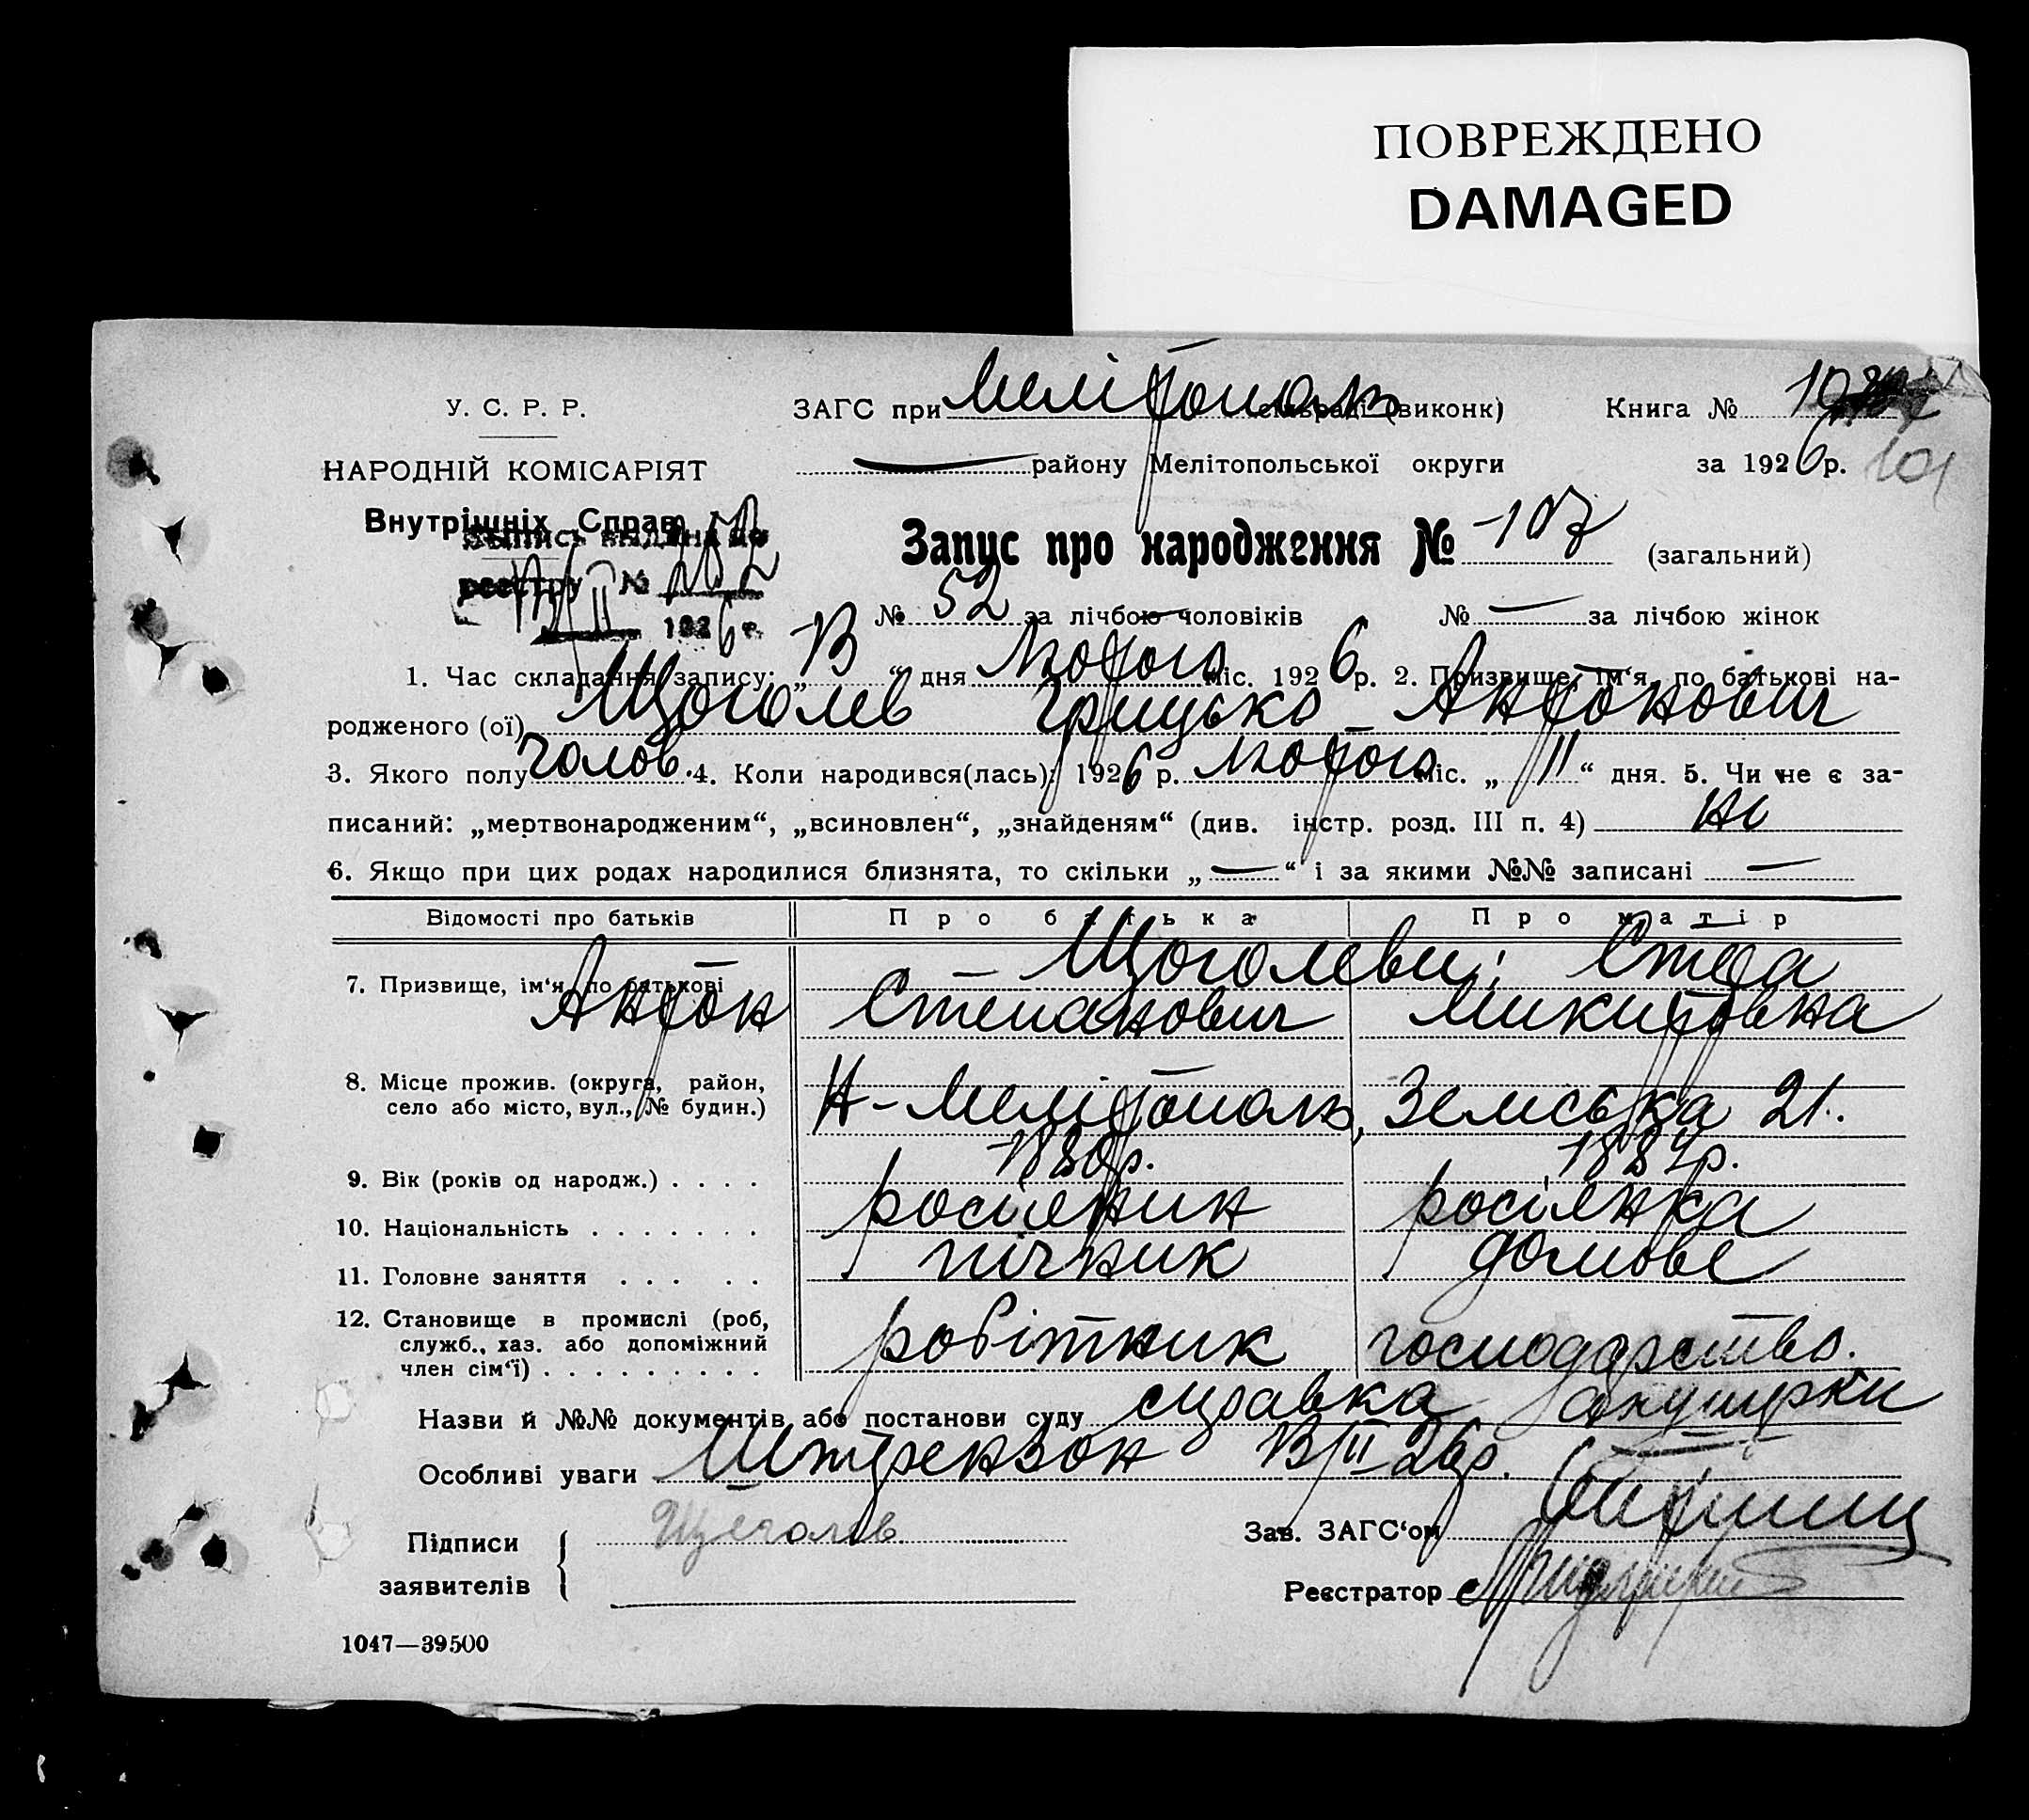 ПОВРЕЖДЕНО
DAMAGED
У. С. Р. Р.
ЗАГС при Мелітополь сільраді (виконк)
Книга №
НАРОДНІЙ КОМІСАРІЯТ
— району Мелітопольської округи
за 1926 р. 101
Внутрішніх Справ
Запис про народження № 107 (загальний)
реєстру №
1926 г.
№ 52 за лічбою чоловіків № — за лічбою жінок
1. Час складання запису: „13“ дня Лютого міс. 1926 р. 2. Призвище, ім‘я, по батькові на-
родженого (ої) Щоголев Грицько Антонович
3. Якого полу чолов. 4. Коли народився(лась): 1926 р. Лютого міс. „11“ дня. 5. Чи не є за-
писаний: „мертвонародженим“, „всиновлен“, „знайденям“ (див. інстр. розд. III п. 4) ні
6. Якщо при цих родах народилися близнята, то скільки „—“ і за якими №№ записані —
Відомості про батьків Про батька Про матір
7. Призвище, ім‘я, по батькові Щоголеви:
Антон Степанович Микитовна
8. Місце прожив. (округа, район,
село або місто, вул., № будин.) Н-Мелітополь, Земська 21.
9. Вік (років од народж.) . . . .
10. Національність . . . . . . . росіянин росіянка
11. Головне заняття . . . . . пічник домове
12. Становище в промислі (роб,
служб., хаз. або допоміжний
член сім‘ї) . . . . . . . . . робітник господарство.
Назви й №№ документів або постанови суду справка акушерки
Особливі уваги Штрензон 13/II 26р.
Підписи
заявителів
Щеголев
Зав. ЗАГС‘ом
Реєстратор
1047—39500